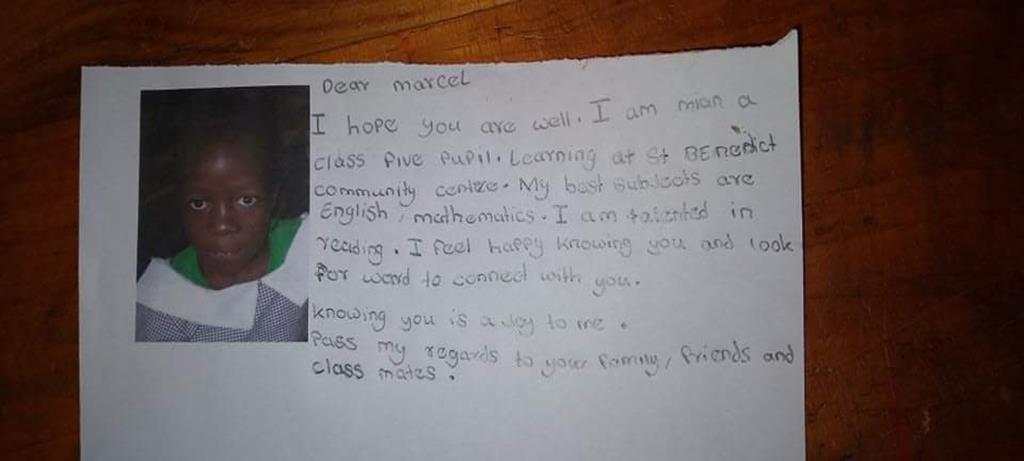 Dear marcel
I hope you are well. I am mian a
class five pupil. Learning at St BENedict
community centre. My best subjects are
English, mathematics. I am talented in
reading. I feel happy knowing you and look
for word to connect with you.
knowing you is a joy to me.
Pass my regards to your family, friends and
class mates.